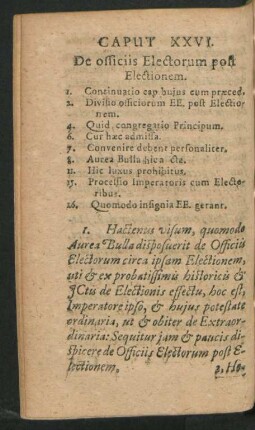 CAPUT XXVI.
De officiis Electorum post
Electionem.
1. Continuatio cap hujus cum præced.
2. Divisio officiorum EE. post Electio-
nem.
4. Quid congregatio Principum.
6. Cur hæc admissa.
7. Convenire debent personaliter.
8. Aurea Bulla hic
11. Hic luxus prohibitus.
15. Processio Imperatoris cum Electo-
ribus.
26. Quomodo insignia EE. gerant.
1. Hactenus visum, quomodo
Aurea Bulla disposuerit de Officiis
Electorum circa ipsam Electionem,
uti & ex probatissimis historicis &
JCtis de Electionis effectu, hoc est,
Imperatore ipso, & hujus potestate
ordinaria, ut & obiter de Extraor-
dinaria: Sequitur jam & paucis di-
spicere de Officiis Electorum post E-
lectionem.